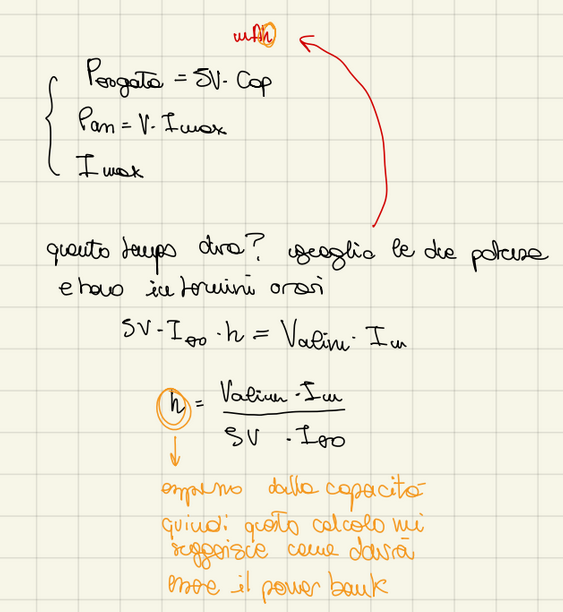 mAh
Perogata = 5V · Cap
Pan = V · Imax
Imax
quanto tempo dura? uguaglio le due potenze
e trovo i termini orari
5V · I · h = Valim · Im
h = Valim · Im
5V · I
dalla capacità
quindi questo calcolo mi
suggerisce come dovrà
essere il power bank